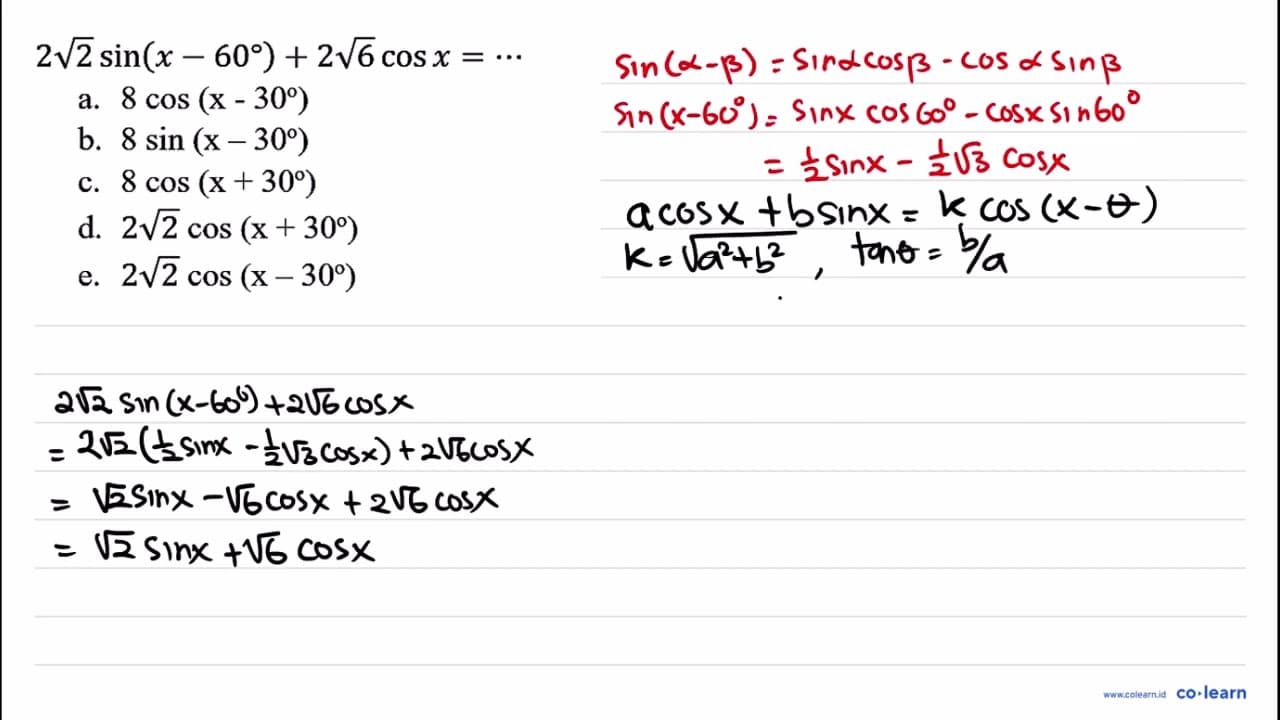 2√2 sin(x − 60°) + 2√6 cos x = ⋯
a. 8 cos (x - 30°)
b. 8 sin (x – 30°)
c. 8 cos (x + 30°)
d. 2√2 cos (x + 30°)
e. 2√2 cos (x – 30°)
sin(α-β) = sinα cosβ - cos α sin β
sin(x-60°) = sinx cos 60° - cosx sin60°
= ½ sinx - ½√3 cosx
a cosx + b sinx = k cos (x-θ)
k = √(a²+b²) , tanθ = b/a
2√2 sin (x-60°) + 2√6 cosx
= 2√2 (½ sinx - ½√3 cosx) + 2√6 cosx
= √2 sinx - √6 cosx + 2√6 cosx
= √2 sinx + √6 cosx
www.colearn.id co·learn